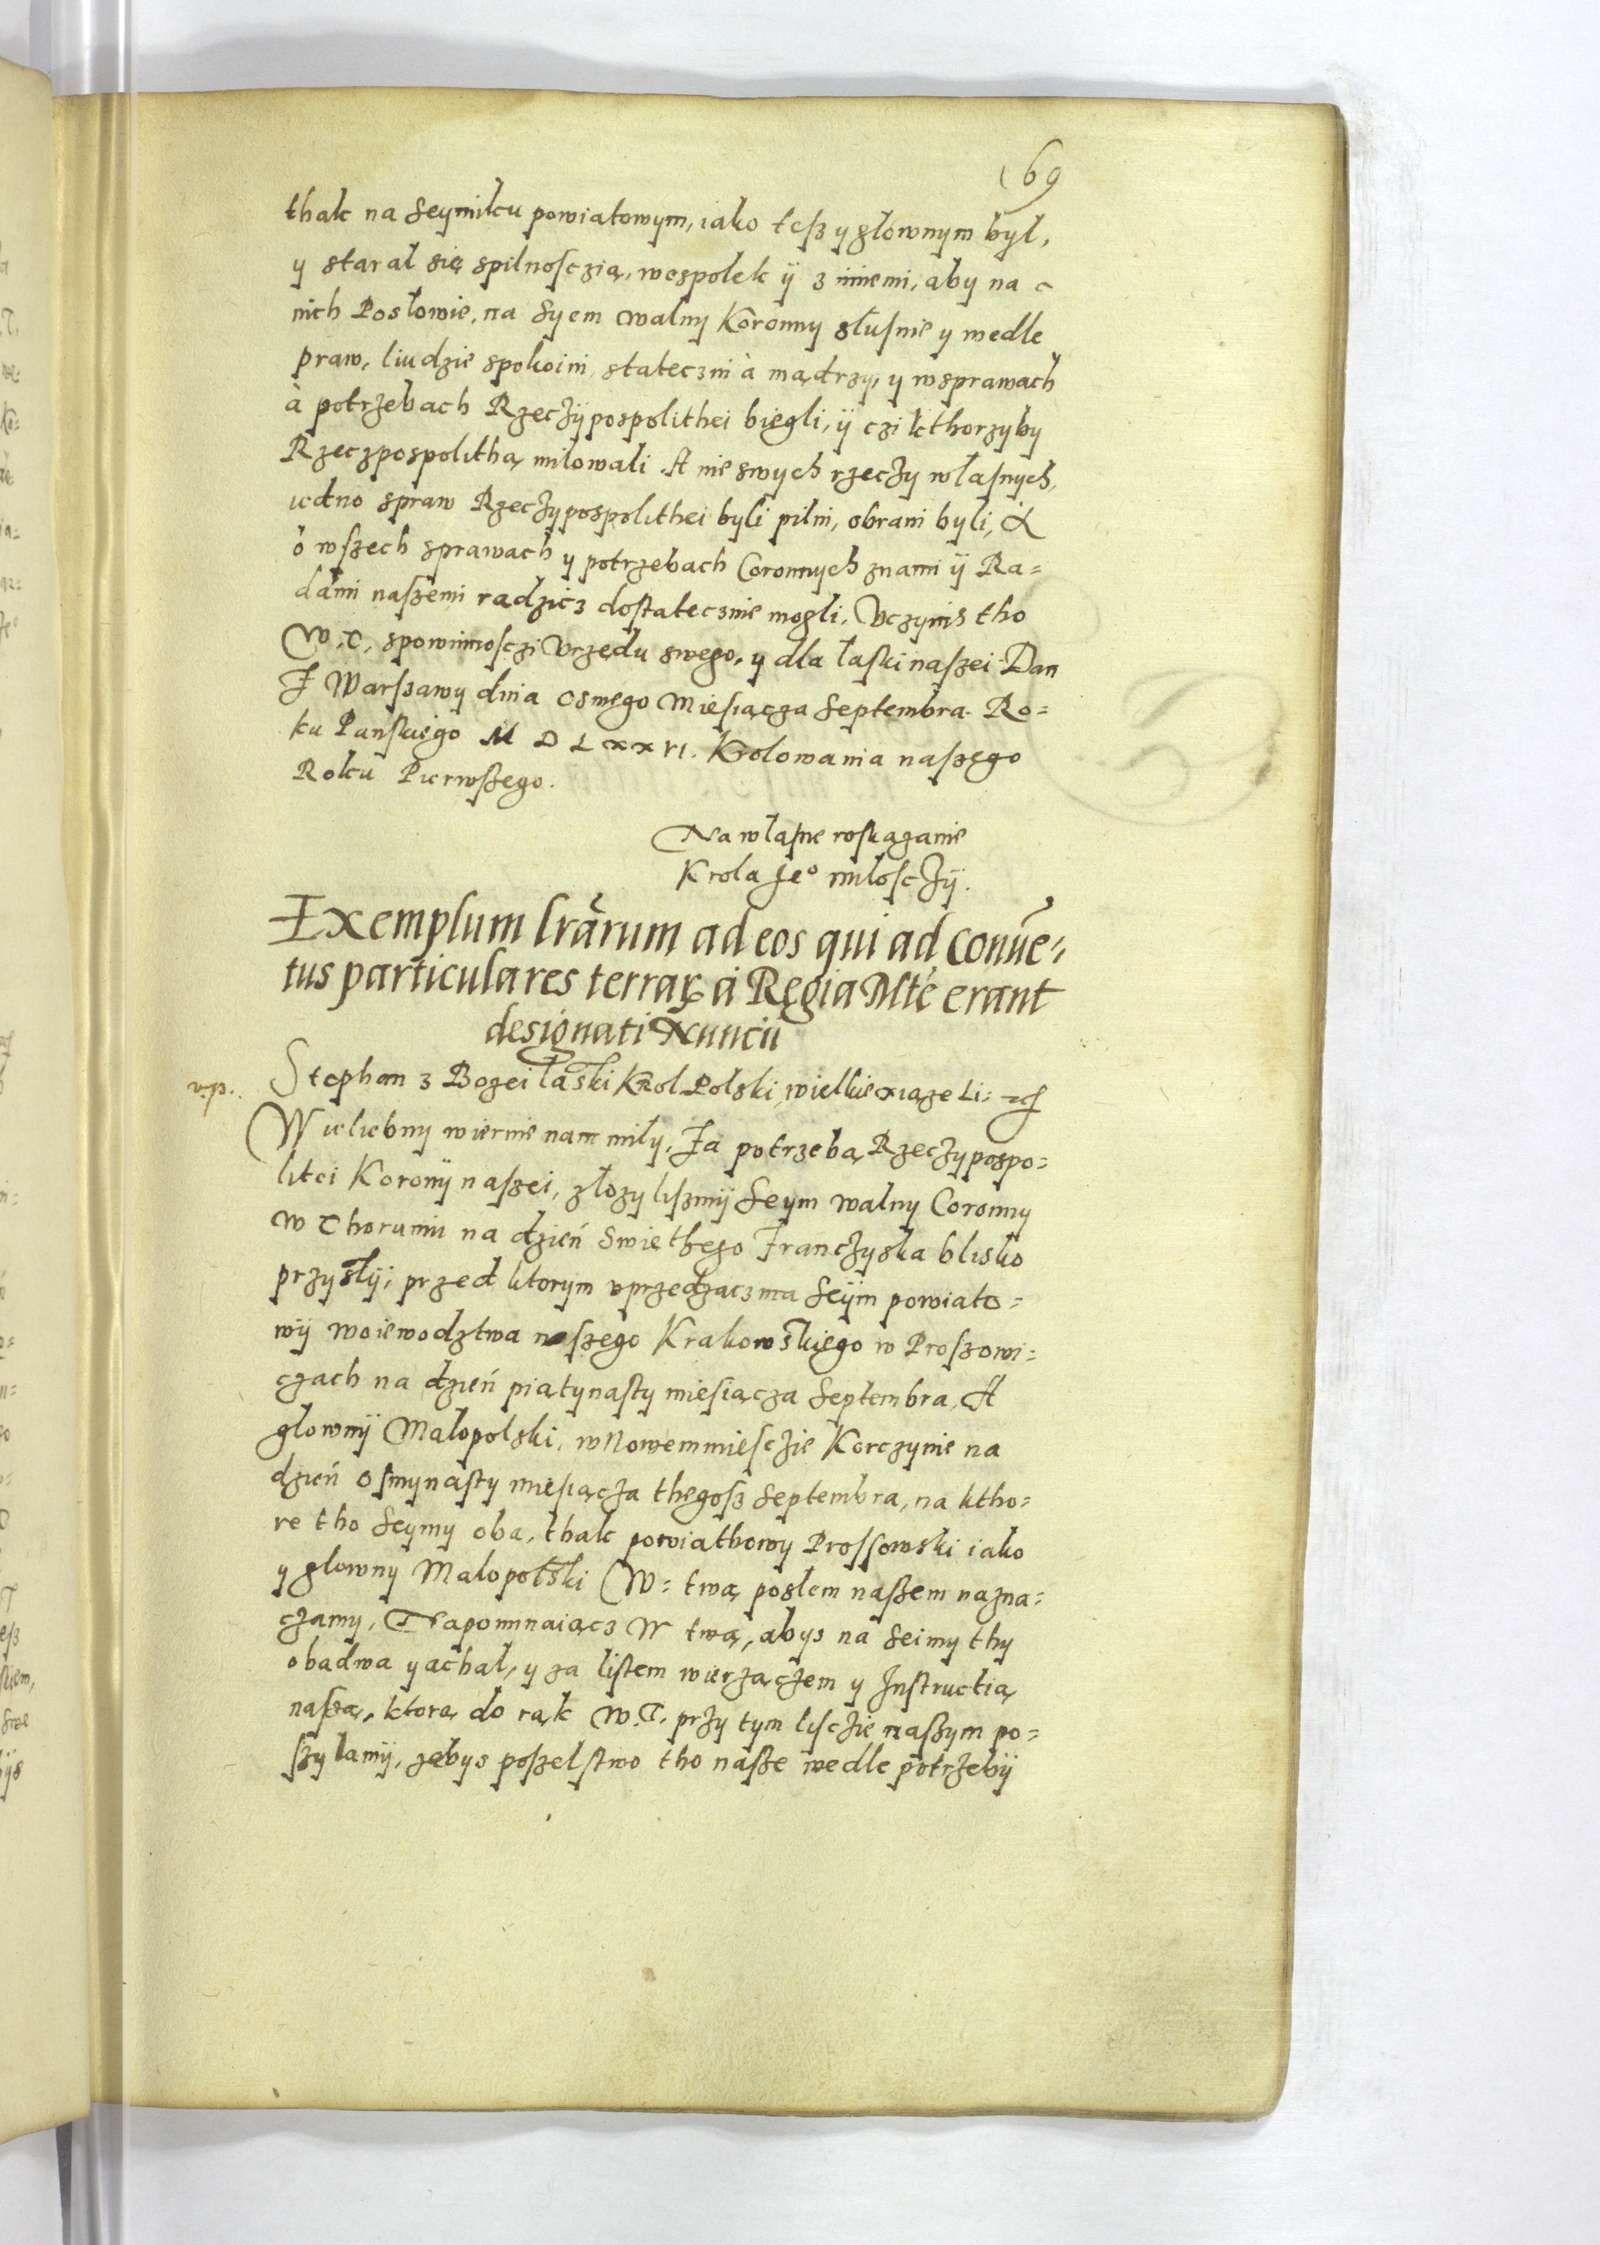 69
thak na Seymiku powiatowym, iako tesz y głownym był,
y starał się spilnosczią, wespołek ÿ z innemi, aby na
nich Posłowie, na Syem walny Koronny słusnie y wedle
praw, liudzie spokoini, stateczni à mądrzy, y wsprawach
à potrzebach Rzeczÿpospolithei biegli, ÿ czi kthorzyby
Rzeczpospolithą miłowali. A nie swych rzeczy własnych,
iedno spraw Rzeczypospolithei byli pilni, obrani byli, A
o wszech sprawach y potrzebach Coronnych znami ÿ Ra=
dami naszemi radzicz dostatecznie mogli. Vczynis tho
W. T. spowinnosczi Vrzędu swego, y dla łaski naszei. Dan
z Warszawy dnia osmego Miesiącza Septembra. Ro=
ku Pańskiego M D LXXVI. Krolowania naszego
Roku Pierwszego.
Na własne roskazanie
Krola Jeº miłosczÿ.
Exemplum lrãrum ad eos qui ad conuẽ=
tus particulares terraꝝ à Regia Mtẽ erant
designati Nuncii
v.p. Stephan z Bozei łaski Krol Polski, wielkie xiąze Li=
Wieliebny wiernie nam miły, Za potrzebą Rzeczypospo=
litei Koronÿ naszei, złozylismÿ Seym walny Coronny
w Thoruniu na dzień Swiethego Franczyska blisko
przysłÿ, przed ktorym vprzedzacz ma Seÿm powiato=
wÿ woiewodztwa naszego Krakowskiego w Proszowi=
czach na dzień piątynasty miesiącza Septembra, A
głownÿ Małopolski, wNowemmiesczie Korczynie na
dzień osmynasty miesiącza thegosz Septembra, na ktho=
re tho Seymy oba, thak powiathowy Prossowski iako
y głowny Małopolski W= twą posłem naszem nazna=
czamy, Napominaiącz W twą, abys na Seimy thy
obadwa yachał, y za listem wierzączem y Instructią
naszą, ktorą do rąk W. T. przy tym lisczie naszym po=
szylamÿ, zebys poszelstwo tho nasze wedle potrzebÿ